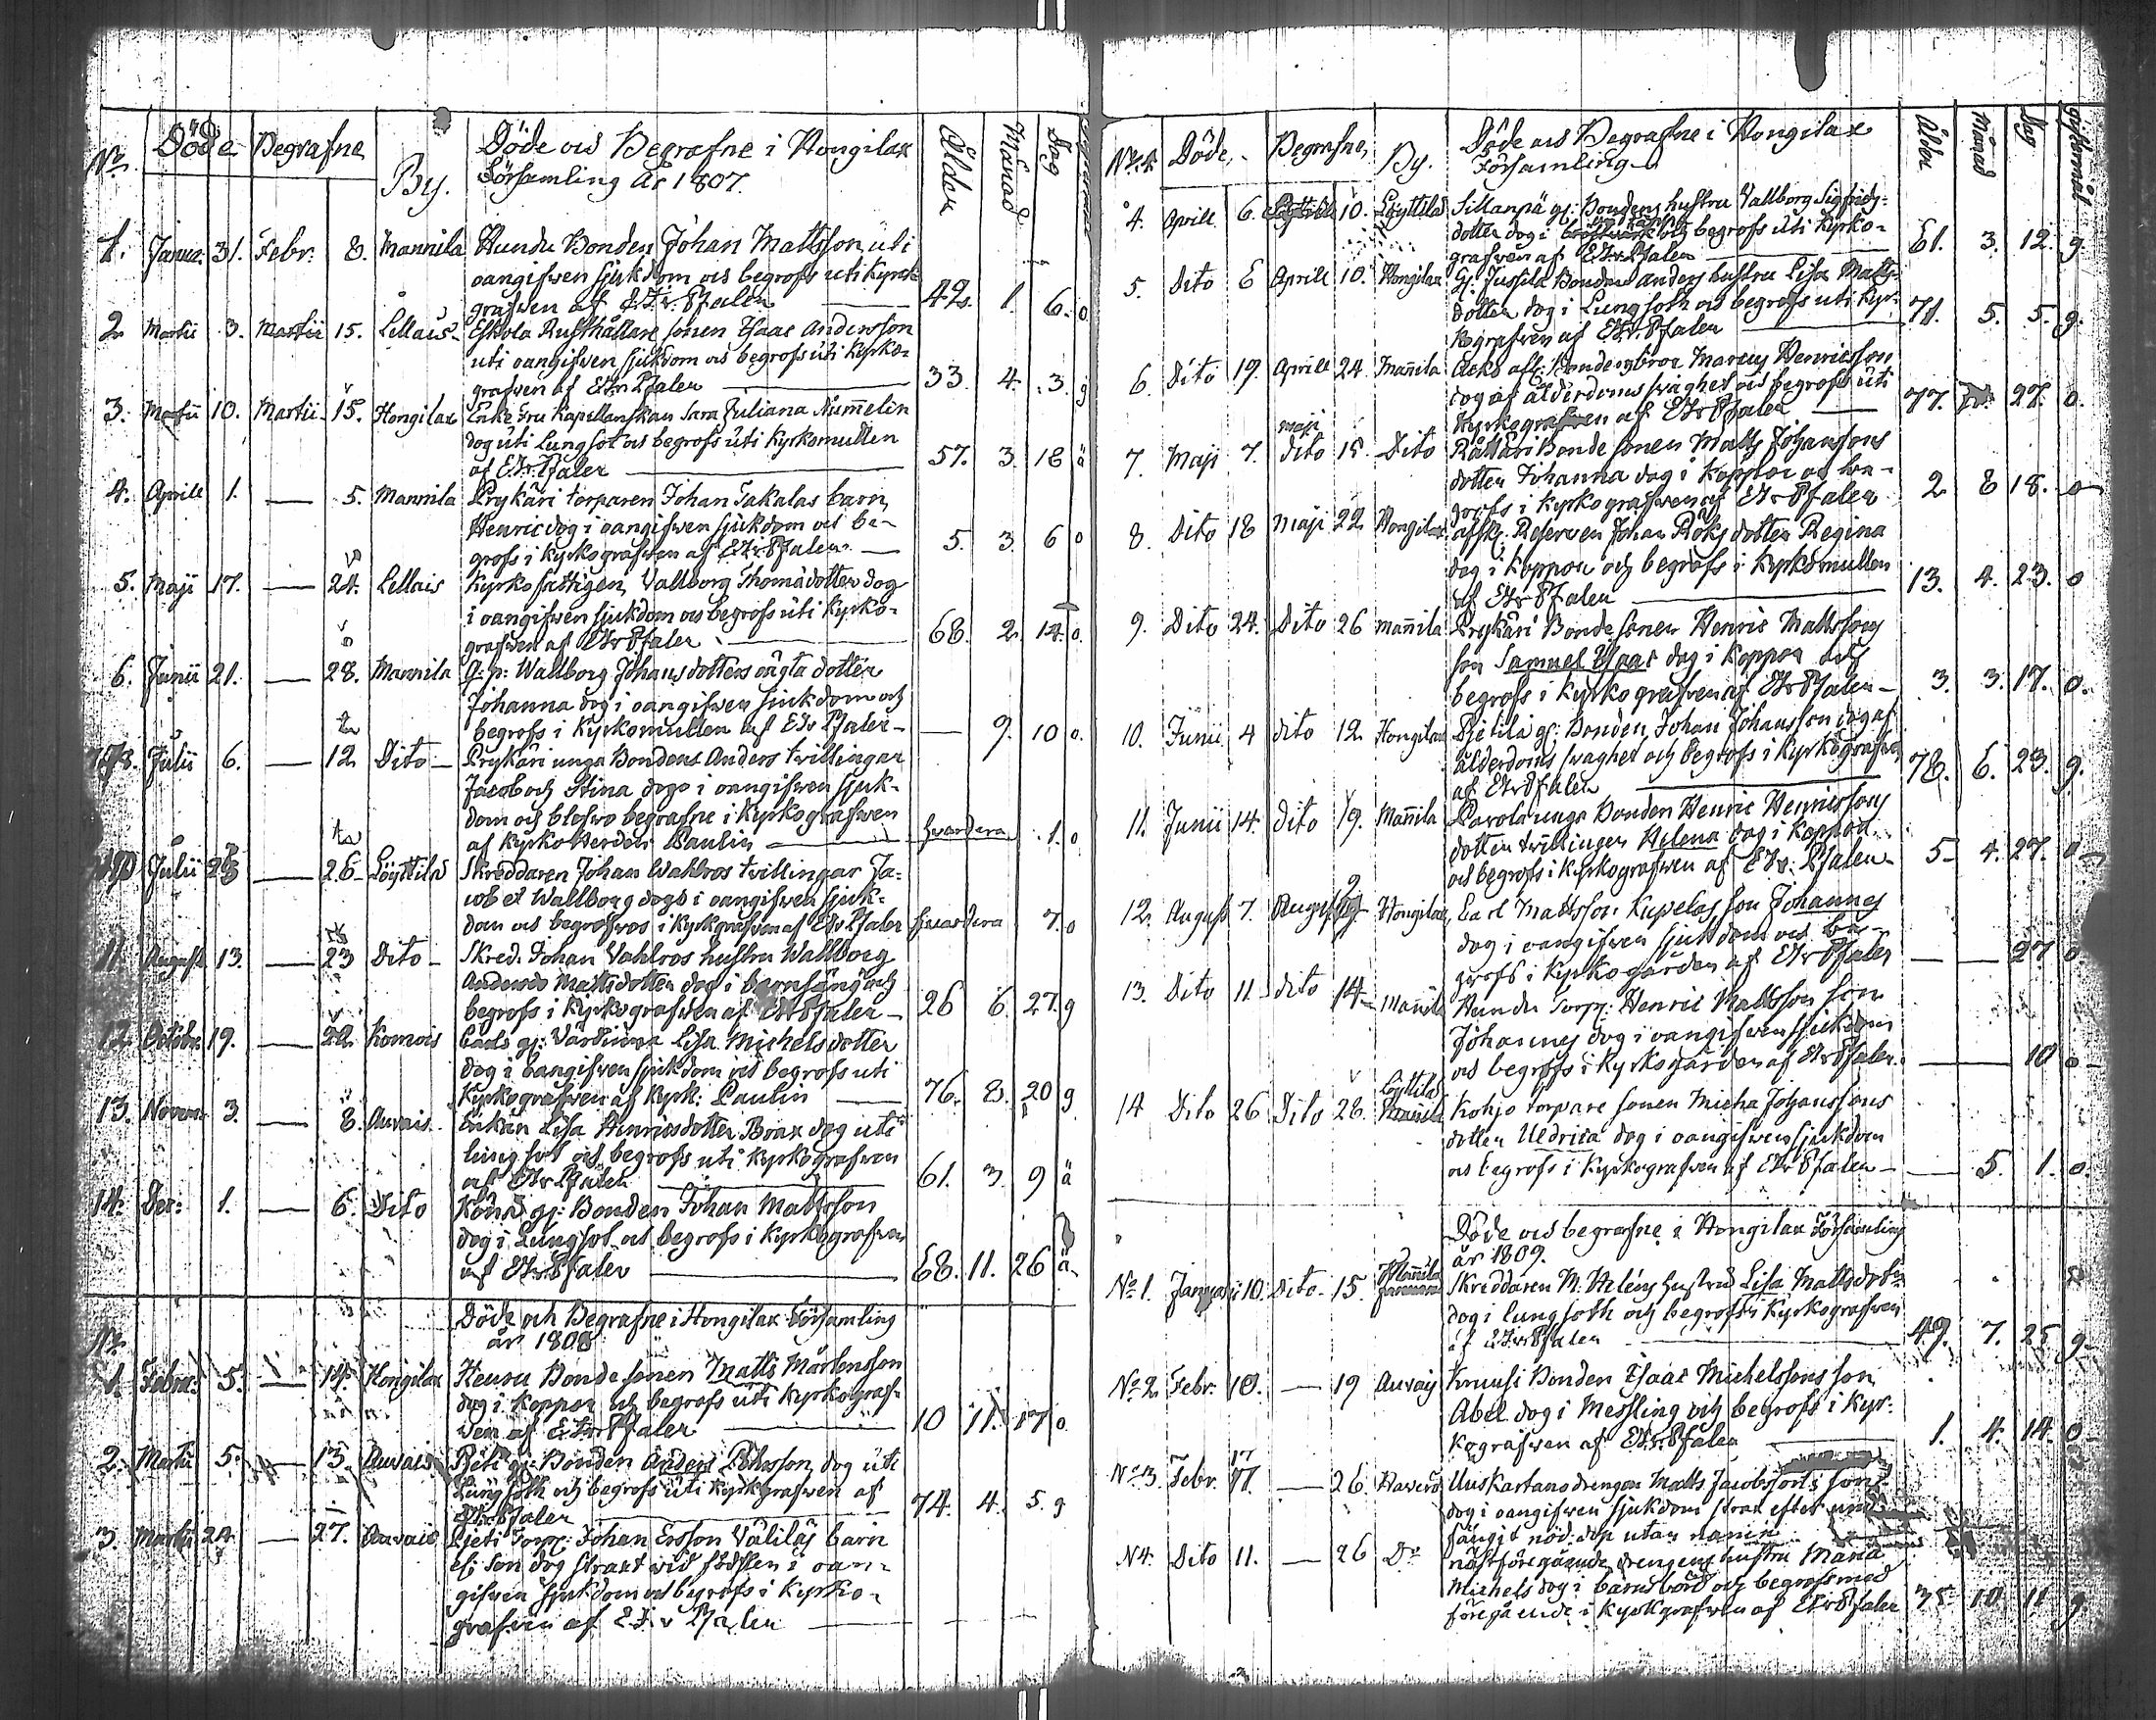 No Döde Begrafne By. Döde och Begrafne i Hongilax Ålder Månad Dag
Församling År 1807.
1. Janua: 31. Febr: 8. Mannila Hundu Bonden Johan Mattsson uti
oangifwen sjukdom och begrofs uti kyrko
grafwen af E.H.v. Pfaler 42. 1. 6. o
2 Martii 3. Martii 15. Lellais Eskola Rusthållare sonen Isaac Andersson
uti oangifwen sjukdom och begrofs uti kyrko-
grafwen af E.H.v. Pfaler 33. 4. 3. g
3. Martii 10. Martii 15. Hongilax Enke Fru Kapellanskan Sara Juliana Num̄elin
dog uti Lungsot och begrofs uti Kyrkomullen
af E.H.v. Pfaler 57. 3. 18 ä
4. Aprill 1. 5. Mannila Prykäri torparen Johan Takalas barn
Henric dog i oangifwen sjukdom och be-
grofs i kyrkografwen af E.H.v. Pfaler 5. 3. 6 o
5. Maji 17. 24. Lellais Kyrkofattigen Vallborg Thomädotter dog
i oangifwen sjukdom och begrofs uti kyrko-
grafwen af E.H.v. Pfaler 68. 2. 14. o.
6. Junii 21. 28. Mannila Q: p: Wallborg Johansdotters oägta dotter
Johanna dog i oangifwen sjukdom och
begrofs i Kyrkomullen af E.H.v. Pfaler 9. 10 o.
Julii 6. 12 Dito Prykäri unga Bondens Anders tvillingar
Jacob och Stina dogo i oangifwen sjuk-
dom och blefwo begrafne i Kyrkografwen
af Kyrko Herden Paulin hvardera 1. o
Julii 26 Löyttilä Skreddaren Johan Wahlros tvillingar Ja-
cob et Wallborg dogo i oangifwen sjuk-
dom och begrofwos i kyrkografwen af E.H.v. Pfaler hvardera 7. o
11 August 13. 23 Dito Skred: Johan Vahlros hustru Wallborg
Anders Mattsdotter dog i barnsäng och
begrofs i Kyrkografwen af E.H.v. Pfaler 26 6. 27. g
12. Octobr: 19. Komois Lads gj: Värdinna Lisa Michelsdotter
dog i oangifwen sjukdom och begrofs uti
Kyrkografwen af Kyrk: Paulin 76. 8. 20 g
13. Novem: 3. 8. Auvais Enkan Lisa Henricsdotter Boax dog uti
lungsot och begrofs uti kyrkografwen
af E.H.v. Pfaler 61. 3 9 ä
14. Dec: 1. 6. Dito gj: Bonden Johan Mattsson
dog i Lungsot och begrofs i Kyrkografwen
af E.H.v. Pfaler 68. 11. 26 ä
Döde och Begrafne i Hongilax Församling
No år 1808
1. Febru: 5. 14. Hongilax Heusu Bondesonen Matts Mårtensson
dog i koppor och begrofs uti Kyrkograf-
wen af E.H.v. Pfaler 10 11. 17 o
2. Martii 5. 13. Auvais Peti gj: Bonden Anders dog uti
Lungsoth och begrofs uti Kyrkografwen af
E.H.v. Pfaler 74. 4. 5. g
3. Martii 27. Auvais Pjeti Torp: Johan Ersson Väliläs barn
et: son dog straxt vid födslen i oan-
gifwen sjukdom och begrofs i Kyrko-
grafwen af E.H.v. Pfaler
No Döde Begrafne By. Döde och Begrafne i Hongilax Ålder Månad Dag giftermål
Församling
4. Aprill 6. 10. Löyttilä Sillanpä gj: Bondens hustru Vallborg Sigfrids-
dotter dog i och begrofs uti Kyrko-
grafwen af E.H.v. Pfaler 61. 3. 12. g
5. Dito 6 Aprill 10. Hongilax Gj: Jussila Bonden Anders hustru Lisa Matts-
dotter dog i Lungsoth och begrofs uti kyr-
kografwen af E.H.v. Pfaler 71. 5. 5. g.
6. Dito 19. Aprill 24. Man̄ila Bondens bror Marcus Henricsson
dog af ålderdoms svaghet och begrofs uti
Kyrkografwen af E.H.v. Pfaler 77. 27. o.
maji
7. Maji 7. Dito 15. Dito Rättäri Bonde sonen Matts Johanssons
dotter Johanna dog i Koppor och be-
grofs i kyrkografwen af E.H.v. Pfaler 2 8 18. o
8. Dito 18 Maji 22 Hongilax afsk: Referven Johan Röks dotter Regina
dog i koppor och begrofs i kyrkomullen
af E.H.v. Pfaler 13. 4. 23. o
9. Dito 24. Dito 26 Man̄ila Prykäri Bondesonen Henric Mattssons
son Samuel Isaac dog i koppor och
begrofs i Kyrkografwen af E.H.v. Pfaler 3. 3. 17. o.
10. Junii 4 dito 12 Hongilax Pietilä gj: Bonden Johan Johansson dog af
ålderdoms svaghet och begrofs i Kyrkografwen
af E.H.v. Pfaler 78. 6. 23. g.
11. Junii 14. dito 19. Man̄ila Parola unga Bonden Henric Henricssons
dotter tvillingen Helena dog i koppor
och begrofs i Kyrkografwen af E.H.v. Pfaler 5 4. 27. o
12. August 7. August Hongilax Carl Mattsson Kupelas son Johannes
dog i oangifwen sjukdom och be-
grofs i Kyrkogården af E.H.v. Pfaler 27 o
13. Dito 11. dito 14 Man̄ila Hundu Torp: Henric Mattsson son
Johannes dog i oangifwen sjukdom
och begrofs i Kyrkogården af E.H.v. Pfaler 10 o
Löyttilä
14 Dito 26 Dito 28. Man̄ila Kohjo torpare sonen Micha Johanssons
dotter Uldrica dog i oangifwen sjukdom
och begrofs i Kyrkografwen af E.H.v. Pfaler 5. 1. o
Döde och begrafne i Hongilax Församling
år 1809.
No 1. Januarii 10. Dito 15. Man̄ila Skreddaren M: Heléns hustru Lisa Mattsdot:
dog i lungsoth och begrofs i Kyrkografwen
af E.H.v. Pfaler 49. 7. 25 g
No 2 Febr: 10. 19 Auvais Knuusi Bonden Isaac Michelssons son
Abel dog i Messling och begrofs i Kyr-
kografwen af E.H.v. Pfaler 1. 4. 14. o
17
No 3. Febr. 11. 26. Haverö Uuskartano drengen Matts Jacobssons son
dog i oangifwen sjukdom strax efter und-
fångit nöd-dop utan namn
N 4. Dito 11. 26 Do näst föregående drengens hustru Maria
Michels dog i barnsbörd och begrofs med
föregående i Kyrkografwen af E.H.v. Pfaler 35 10 11 g